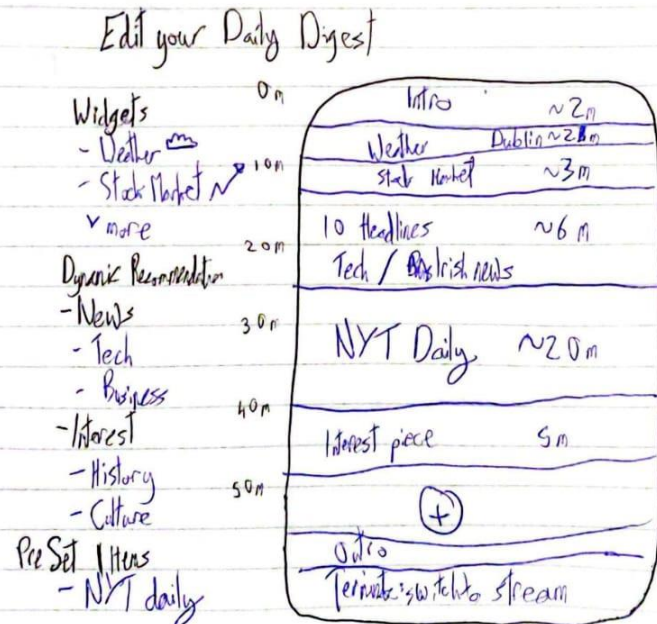 Edit your Daily Digest
Widgets
- Weather
- Stock Market
v more
Dynamic Recommendation
- News
- Tech
- Business
- Interest
- History
- Culture
Pre Set Items
- NYT daily
0m
10m
20m
30m
40m
50m
Intro ~2m
Weather Dublin ~2m
Stock Market ~3m
10 Headlines ~6m
Tech / Irish news
NYT Daily ~20m
Interest piece 5m
+
Outro
Terminate: switch to stream